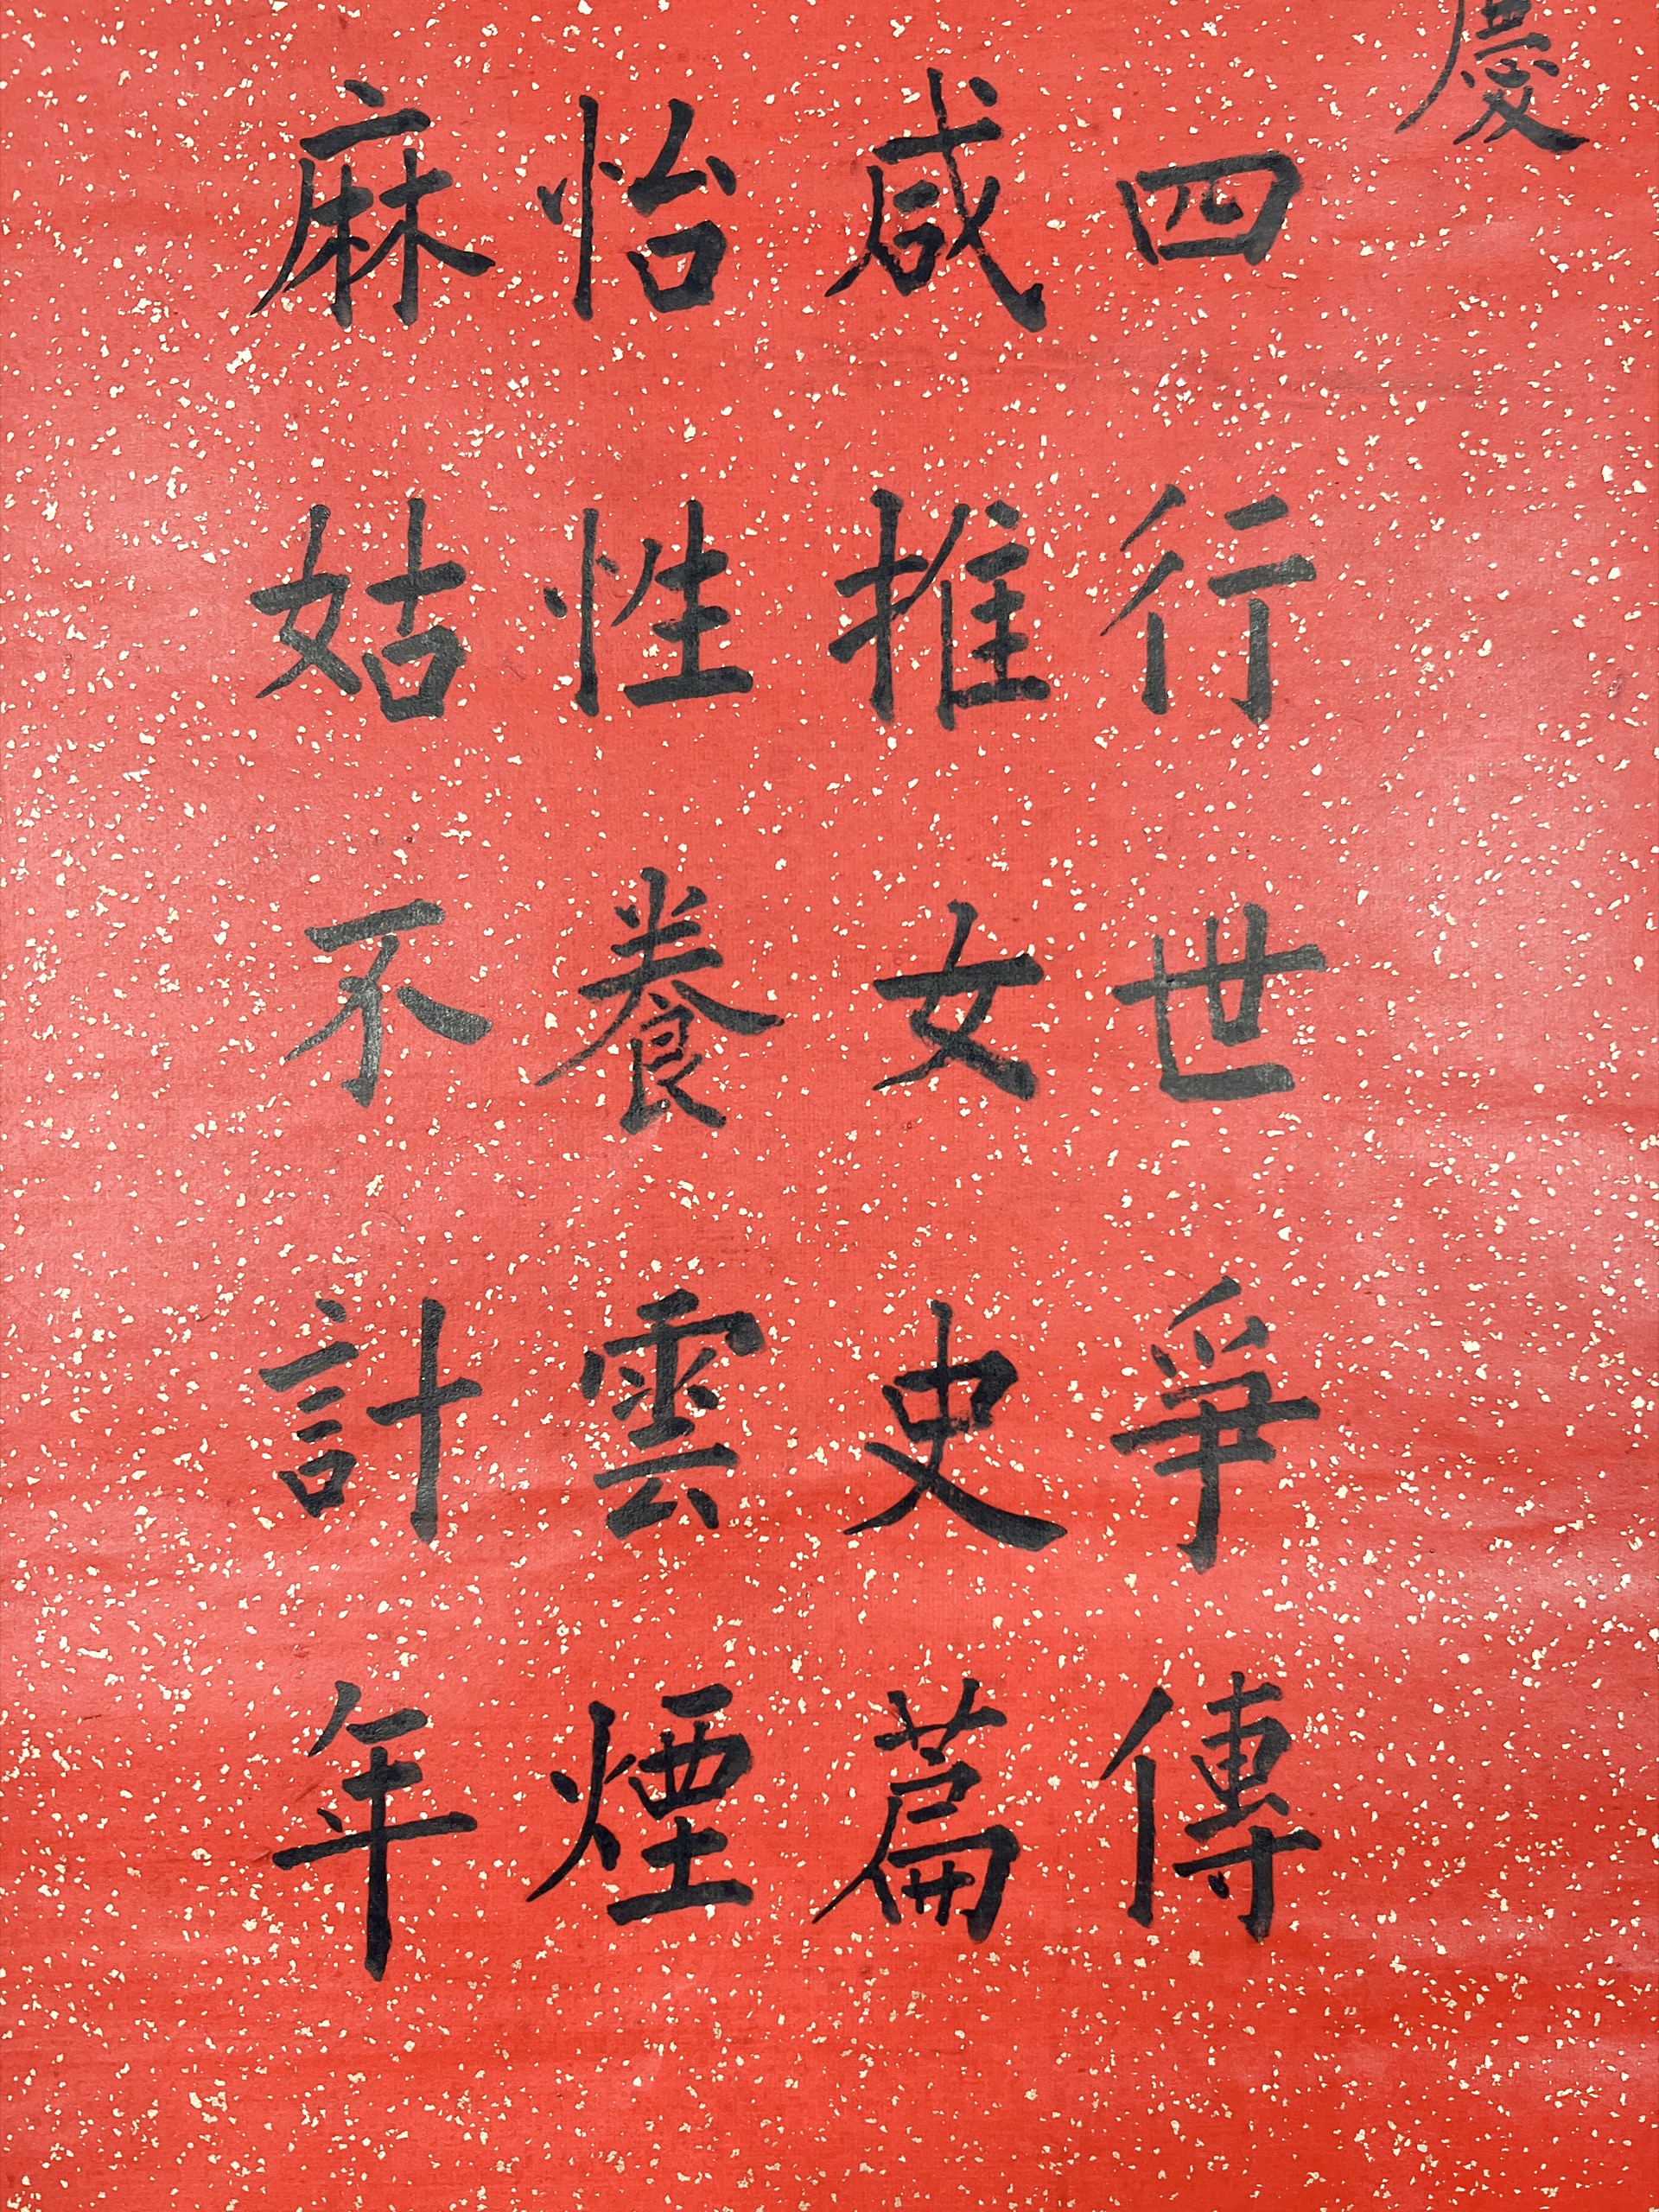 慶
四行世爭傳
咸推女史篇
怡性養雲煙
麻姑不計年